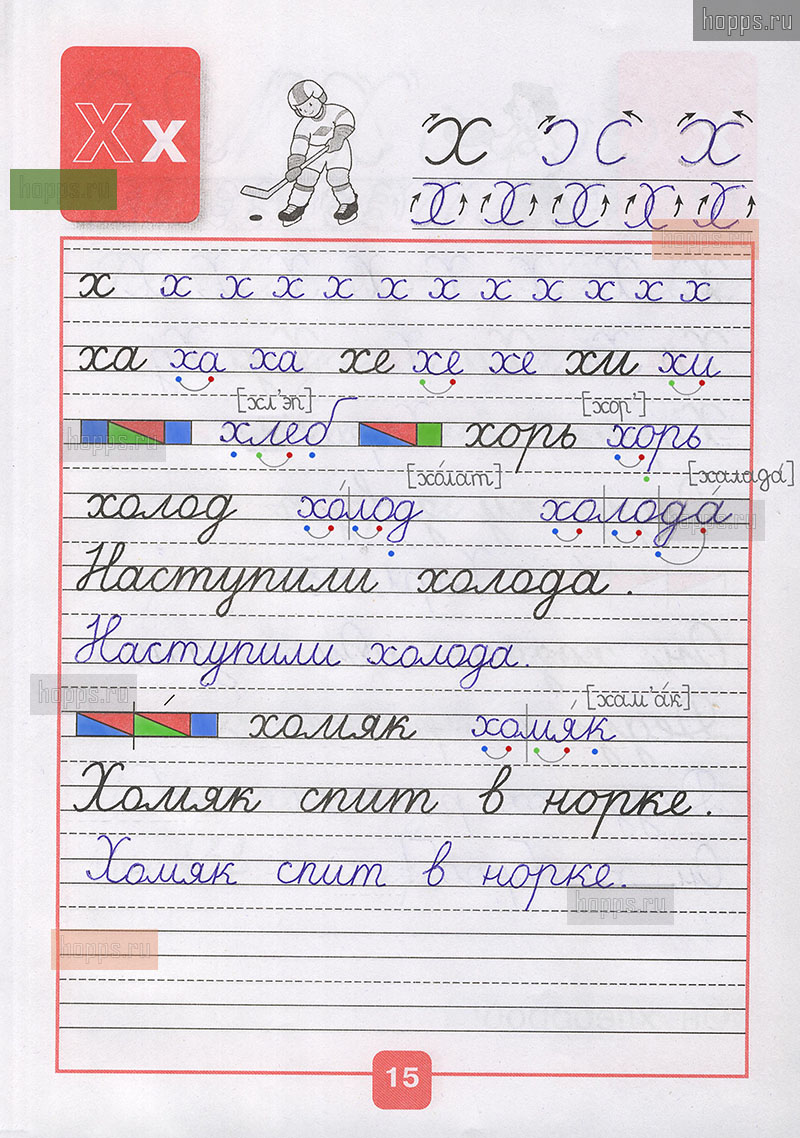 hopps.ru
Х х
х э с х
х х х х х
hopps.ru
hopps.ru
х х х х х х х х х х х х
ха ха ха хе хе хе хи хи
[хл'эп] [хор']
хлеб хорь хорь
hopps.ru
[хо́лат] [халада́]
холод хо́лод холода́
hopps.ru
Наступили холода.
Наступили холода.
hopps.ru
[хам'а́к]
хомяк хомя́к
Хомяк спит в норке.
Хомяк спит в норке.
hopps.ru
hopps.ru
15